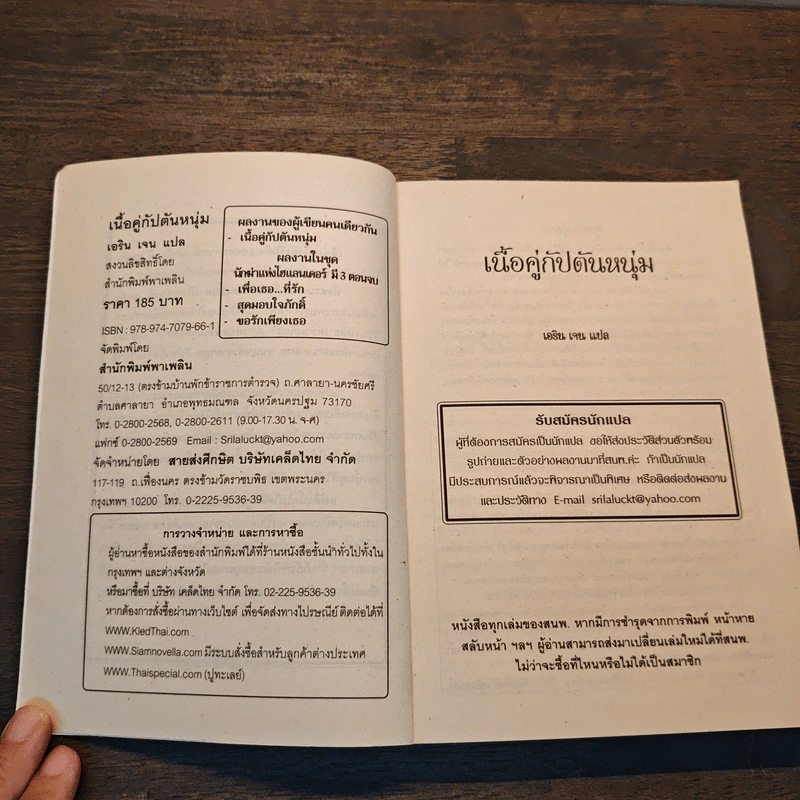 เนื้อคู่กัปตันหนุ่ม
เอริน เจน แปล
สงวนลิขสิทธิ์โดย
สำนักพิมพ์พาเพลิน
ราคา 185 บาท
ISBN : 978-974-7079-66-1
จัดพิมพ์โดย
สำนักพิมพ์พาเพลิน
50/12-13 (ตรงข้ามบ้านพักข้าราชการตำรวจ) ถ.ศาลายา-นครชัยศรี
ตำบลศาลายา อำเภอพุทธมณฑล จังหวัดนครปฐม 73170
โทร. 0-2800-2568, 0-2800-2611 (9.00-17.30 น. จ-ศ)
แฟกซ์ 0-2800-2569 Email : Srilaluckt@yahoo.com
จัดจำหน่ายโดย สายส่งศึกษิต บริษัทเคล็ดไทย จำกัด
117-119 ถ.เฟื่องนคร ตรงข้ามวัดราชบพิธ เขตพระนคร
กรุงเทพฯ 10200 โทร. 0-2225-9536-39
ผลงานของผู้เขียนคนเดียวกัน
- เนื้อคู่กัปตันหนุ่ม
ผลงานในชุด
นักฆ่าแห่งไฮแลนเดอร์ มี 3 ตอนจบ
- เพื่อเธอ...ที่รัก
- สุดมอบใจภักดิ์
- ขอรักเพียงเธอ
การวางจำหน่าย และการหาซื้อ
ผู้อ่านหาซื้อหนังสือของสำนักพิมพ์ได้ที่ร้านหนังสือชั้นนำทั่วไปทั้งใน
กรุงเทพฯ และต่างจังหวัด
หรือมาซื้อที่ บริษัท เคล็ดไทย จำกัด โทร. 02-225-9536-39
หากต้องการสั่งซื้อผ่านทางเว็บไซต์ เพื่อจัดส่งทางไปรษณีย์ ติดต่อได้ที่
WWW.KledThai.com
WWW.Siamnovella.com มีระบบสั่งซื้อสำหรับลูกค้าต่างประเทศ
WWW.Thaispecial.com (ปูทะเลย์)
เนื้อคู่กัปตันหนุ่ม
เอริน เจน แปล
รับสมัครนักแปล
ผู้ที่ต้องการสมัครเป็นนักแปล ขอให้ส่งประวัติส่วนตัวพร้อม
รูปถ่ายและตัวอย่างผลงานมาที่สนพ.ค่ะ ถ้าเป็นนักแปล
มีประสบการณ์แล้วจะพิจารณาเป็นพิเศษ หรือติดต่อส่งผลงาน
และประวัติทาง E-mail srilaluckt@yahoo.com
หนังสือทุกเล่มของสนพ. หากมีการชำรุดจากการพิมพ์ หน้าหาย
สลับหน้า ฯลฯ ผู้อ่านสามารถส่งมาเปลี่ยนเล่มใหม่ได้ที่สนพ.
ไม่ว่าจะซื้อที่ไหนหรือไม่ได้เป็นสมาชิก